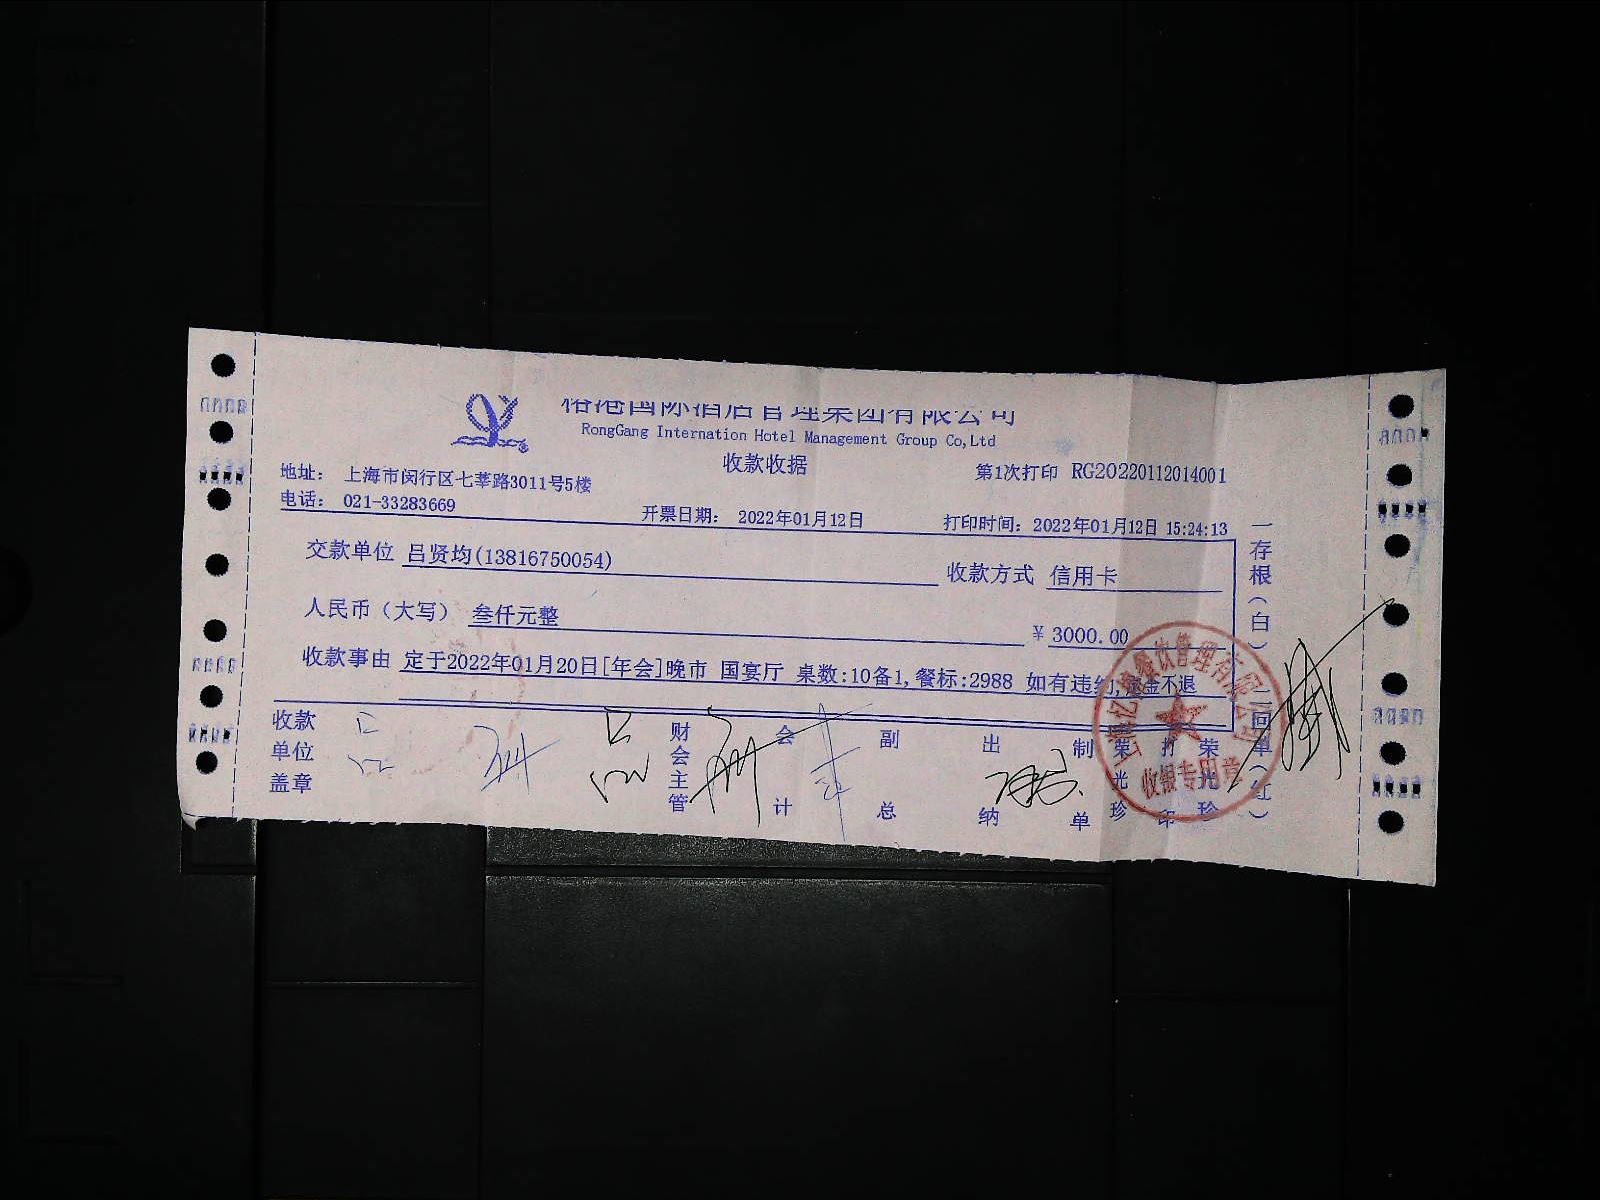 榕港国际酒店管理集团有限公司
RongGang Internation Hotel Management Group Co,Ltd
收款收据
第1次打印 RG20220112014001
地址: 上海市闵行区七莘路3011号5楼
电话: 021-33283669
开票日期: 2022年01月12日
打印时间: 2022年01月12日 15:24:13
交款单位 吕贤均(13816750054)
收款方式 信用卡
人民币(大写) 叁仟元整
¥ 3000.00
收款事由 定于2022年01月20日[年会]晚市 国宴厅 桌数:10备1,餐标:2988 如有违约,定金不退
收款单位盖章
财会主管
会计
副总
出纳
制单
荣光珍
打印
荣光珍
一存根(白)
二回单(红)
餐饮管理有限公司
收银专用章